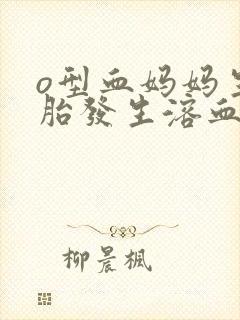 o型血妈妈
胎發生溶血
柳晨楓